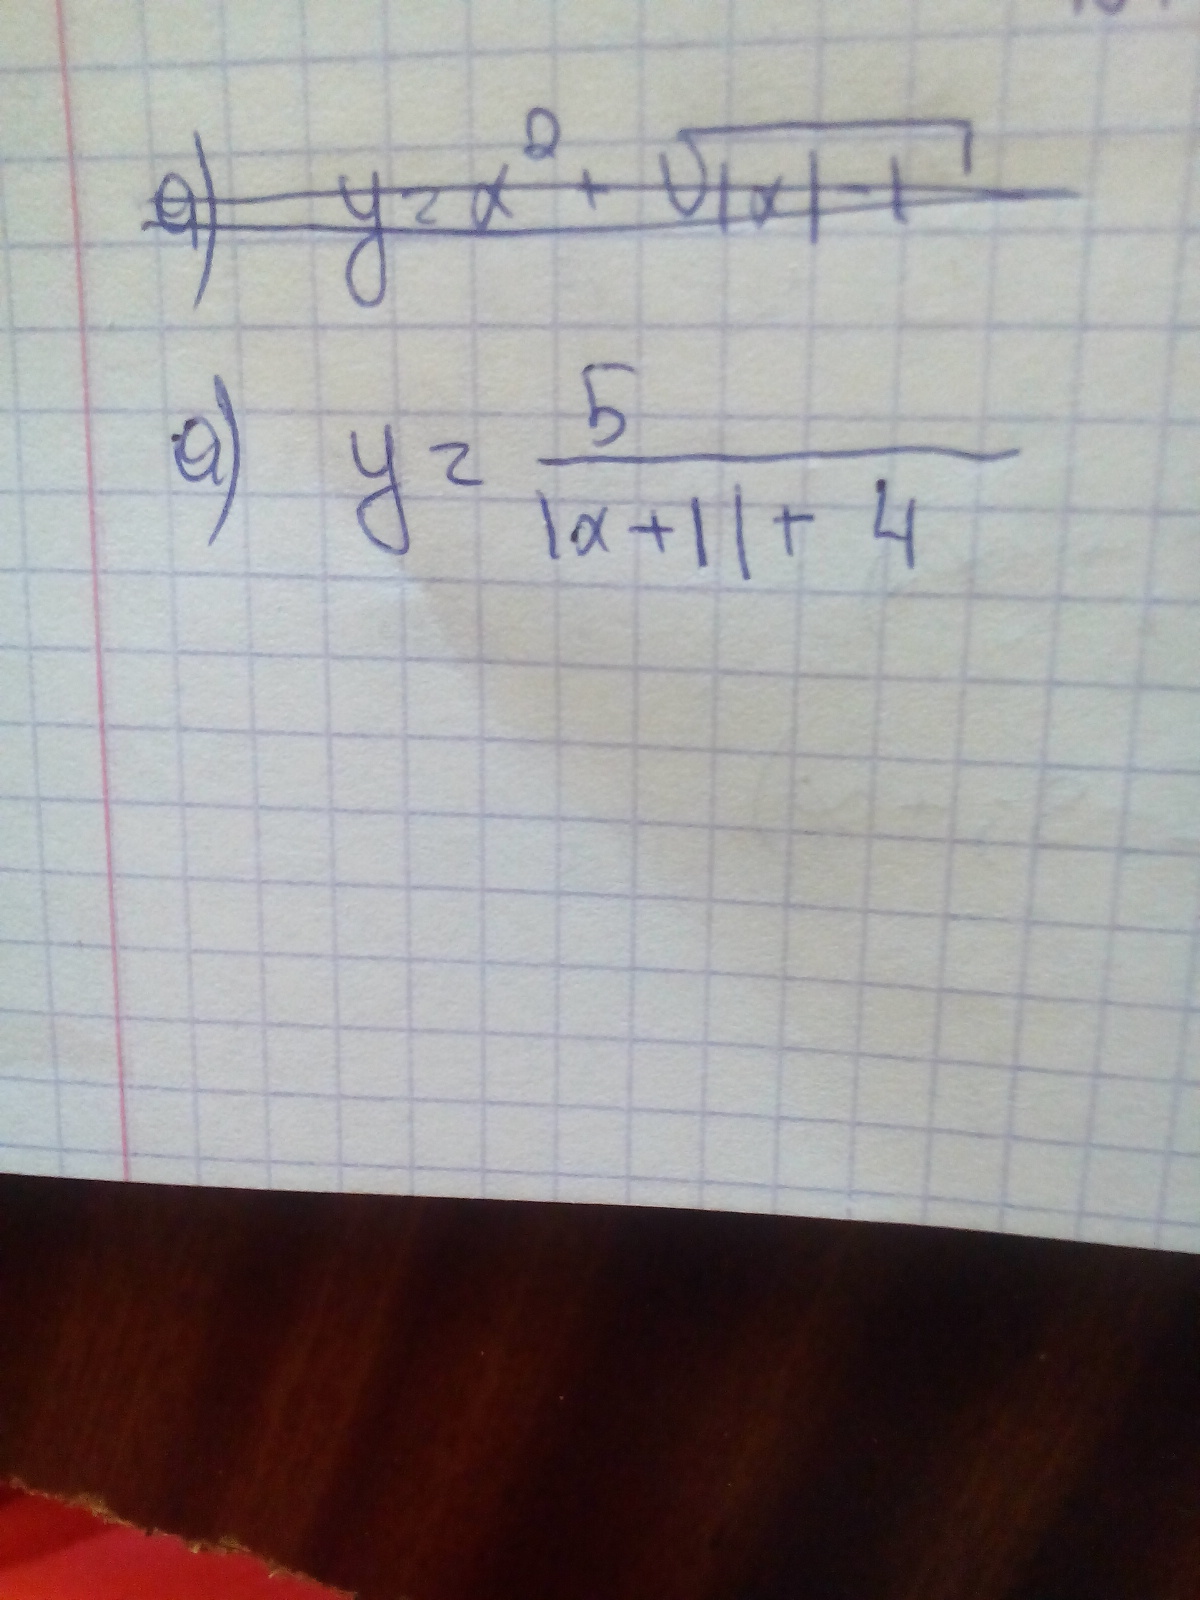 а) y = x² + √|x| - 1
а) y = 5 / |x+1| + 4